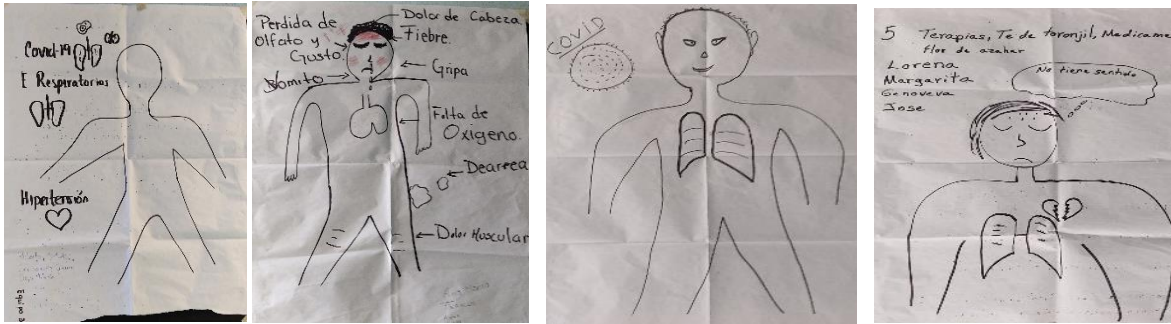 Covid-19
E Respiratorias
Hipertensión
Perdida de
Olfato y
Gusto
Vomito
Dolor de Cabeza
Fiebre.
Gripa
Falta de
Oxigeno.
Deareea
Dolor Muscular
COVID
5 Terapias, Te de toronjil, Medicame
flor de azahar
Lorena
Margarita
Genoveva
Jose
No tiene sentido